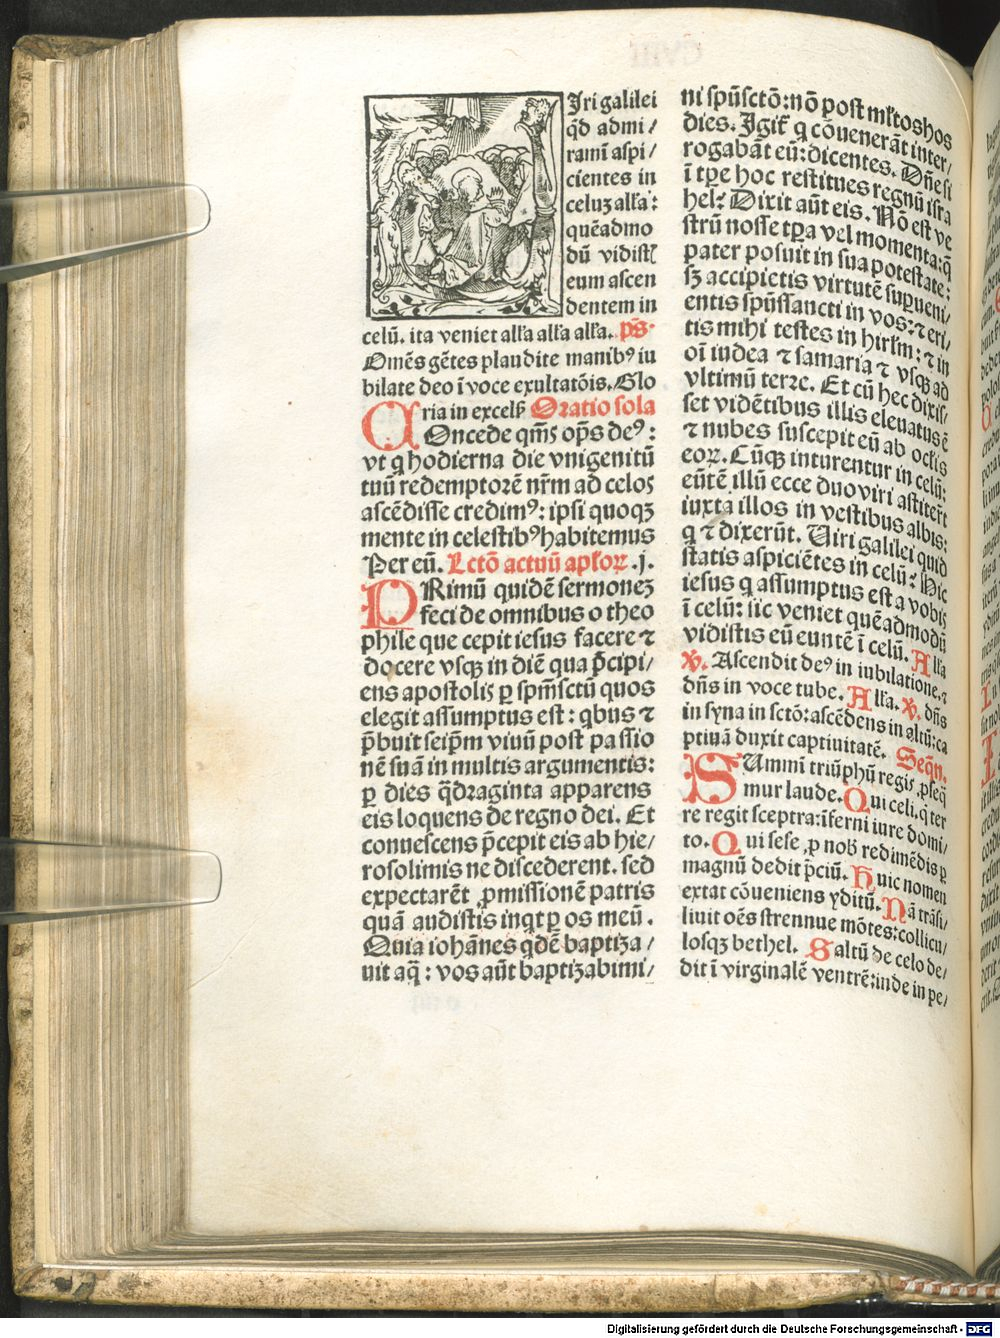 Jri galilei
q̄d admi /
ramī aspi /
cientes in
celuꝫ all'a:
quēadmo
dū vidistꝭ
eum ascen
dentem in
celū. ita veniet all'a all'a all'a. p̄s.
Omēs gētes plaudite manibꝰ iu
bilate deo ī voce exultatōis. Glo
ria in excels̄ Oratio sola
COncede qm̄s op̄s deꝰ :
vt q hodierna die vnigenitū
tuū redemptorē nr̄m ad celos
ascēdisse credimꝰ: ipsi quoqꝫ
mente in celestibꝰ habitemus
Per eū. Lctō actuū apl'oꝝ .j.
PRimū quidē sermoneꝫ
feci de omnibus o theo
phile que cepit iesus facere ⁊
docere vsqꝫ in diē qua p̄cipi /
ens apostolis ꝑ spm̄sctū quos
elegit assumptus est : qbus ⁊
p̄buit seip̄m viuū post passio
nē suā in multis argumentis:
ꝑ dies q̄draginta apparens
eis loquens de regno dei. Et
conuescens p̄cepit eis ab hie /
rosolimis ne discederent. sed
expectarēt ꝓmissionē patris
quā audistis inqt ꝑ os meū .
Quia iohānes qdē baptiza /
uit aq̄ : vos aūt baptizabimi /
ni spū sctō: nō post ml'tos hos
dies. Jgit' q cōuenerāt inter /
rogabāt eū: dicentes. Dn̄e si
ī tꝑe hoc restitues regnū isra
hel? Dixit aūt eis. Nō est ve
strū nosse tꝑa vel momenta: q̄
pater posuit in sua potestate:
sꝫ accipietis virtutē suꝑueni /
entis spūssancti in vos: ⁊ eri /
tis mihi testes in hirl'm: ⁊ in
oī iudea ⁊ samaria ⁊ vsqꝫ ad
vltimū terre. Et cū hec dixis /
set vidētibus illis eleuatus ē
⁊ nubes suscepit eū ab ocl'is
eoꝝ. Cūqꝫ inturentur in celū:
eūtē illū ecce duo viri astiter̄t
iuxta illos in vestibus albis:
q ⁊ dixerūt. Uiri galilei quid
statis aspiciētes in celū? Hic
iesus q assumptus est a vobis
ī celū: sic veniet quēadmodū
vidistis eū euntē ī celū. All'a
℣. Ascendit deꝰ in iubilatione, ⁊
dn̄s in voce tube. All'a. ℣. dn̄s
in syna in sctō: ascēdens in altū: ca
ptiuā duxit captiuitatē. Seqn̄.
SUmmi triūphū regis ꝓseq̄
mur laude. Qui celi, q ter
re regit sceptra: īferni iure domi /
to. Qui sese ꝓ nob̄ redimēdis ꝑ
magnū dedit p̄ciū. Huic nomen
extat cōueniens yditū. Nā trāsi /
liuit oēs strennue mōtes: collicu /
losqꝫ bethel. Saltū de celo de /
dit ī virginalē ventrē: inde in pe /
Digitalisierung gefördert durch die Deutsche Forschungsgemeinschaft - DFG